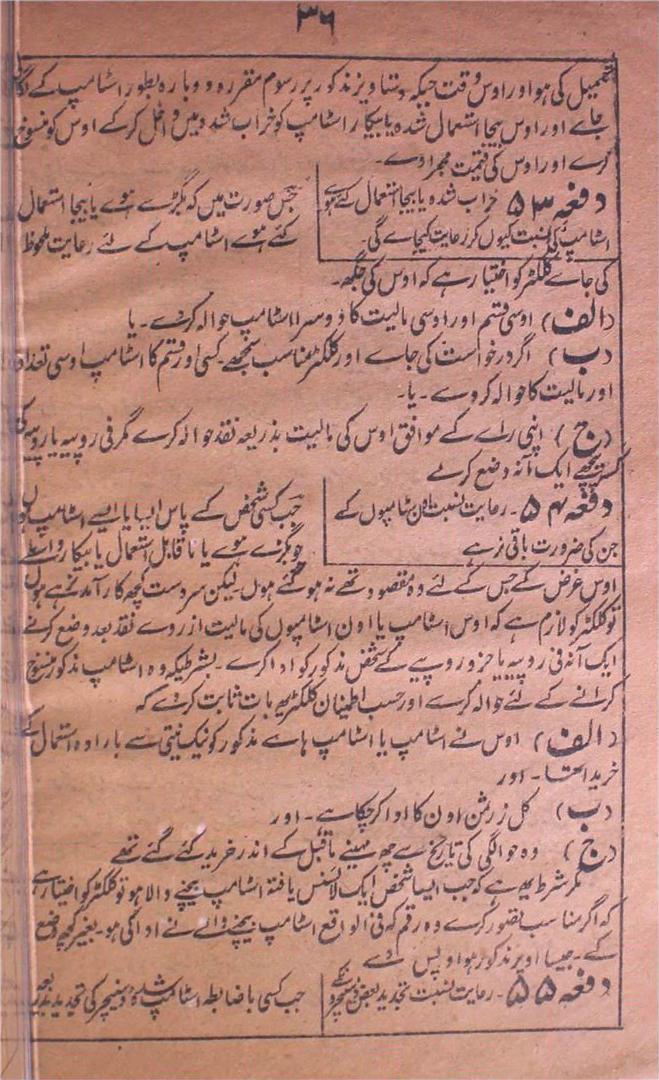 ۳۶
تعمیل کی ہو اور اوس وقت جبکہ دستاویز مذکور پر رسوم مقررہ دوبارہ بطور اسٹامپ کے
جاے اور اوس بیجا استعمال شدہ یا بیکار اسٹامپ کو خراب شدہ میں داخل کرکے اوس کو منسوخ
کرے اور اوس کی قیمت مجرا دے۔
دفعہ ۵۳ خراب شدہ یا بیجا استعمال کئے ہوے
اسٹامپ کی نسبت کیوں کر رعایت کیجاے گی۔
جس صورت میں کہ بگڑے ہوے یا بیجا استعمال
کئے ہوے اسٹامپ کے لئے رعایت ملحوظ
کی جاے کلکٹر کو اختیار ہے کہ اوس کی جگہ۔
(الف) اوسی قسم اور اوسی مالیت کا دوسرا اسٹامپ حوالہ کردے۔ یا
(ب) اگر درخواست کی جاے اور کلکٹر مناسب سمجھے۔ کسی اور قسم کا اسٹامپ اوسی تعداد
اور مالیت کا حوالہ کردے۔ یا۔
(ج) اپنی راے کے موافق اوس کی مالیت بذریعہ نقد حوالہ کرے مگر فی روپیہ یا روپیہ کی
کسر پیچھے ایک آنہ وضع کرلے
دفعہ ۵۴۔ رعایت نسبت اون اسٹامپوں کے
جن کی ضرورت باقی نرہے
جب کسی شخص کے پاس ایسا یا ایسے اسٹامپ ہوں
جو بگڑے ہوے یا ناقابل استعمال یا بیکار واسطے
اوس غرض کے جس کے لئے وہ مقصود تھے نہ ہوگئے ہوں لیکن سردست کچھ کارآمد نرہے ہوں
تو کلکٹر کو لازم ہے کہ اوس اسٹامپ یا اون اسٹامپوں کی مالیت از روے نقد بعد وضع کرنے
ایک آنہ فی روپیہ یا جزو روپیے کے شخص مذکور کو ادا کرے۔ بشرطیکہ وہ اسٹامپ مذکور منسوخ
کرانے کے لئے حوالہ کرے اور حسب اطمینان کلکٹر یہ بات ثابت کردے کہ
(الف) اوس نے اسٹامپ یا اسٹامپ ہاے مذکور کو نیک نیتی سے بارادہ استعمال کے
خریدا تھا۔ اور
(ب) کل زر ثمن اون کا ادا کرچکا ہے۔ اور
(ج) وہ حوالگی کی تاریخ سے چھ مہینے ماقبل کے اندر خرید کئے گئے تھے
مگر شرط یہ ہے کہ جب ایسا شخص ایک لائسنس یافتہ اسٹامپ بیچنے والا ہو تو کلکٹر کو اختیار ہے
کہ اگر مناسب تصور کرے وہ رقم کہ فی الواقع اسٹامپ بیچنے والے نے ادا کی ہو۔ بغیر کچھ وضع
کے۔ جیسا اوپر مذکور ہوا واپس دے
دفعہ ۵۵۔ رعایت نسبت تجدید بعض ڈبنچر کے
جب کسی باضابطہ اسٹامپ شدہ ڈبنچر کی تجدید